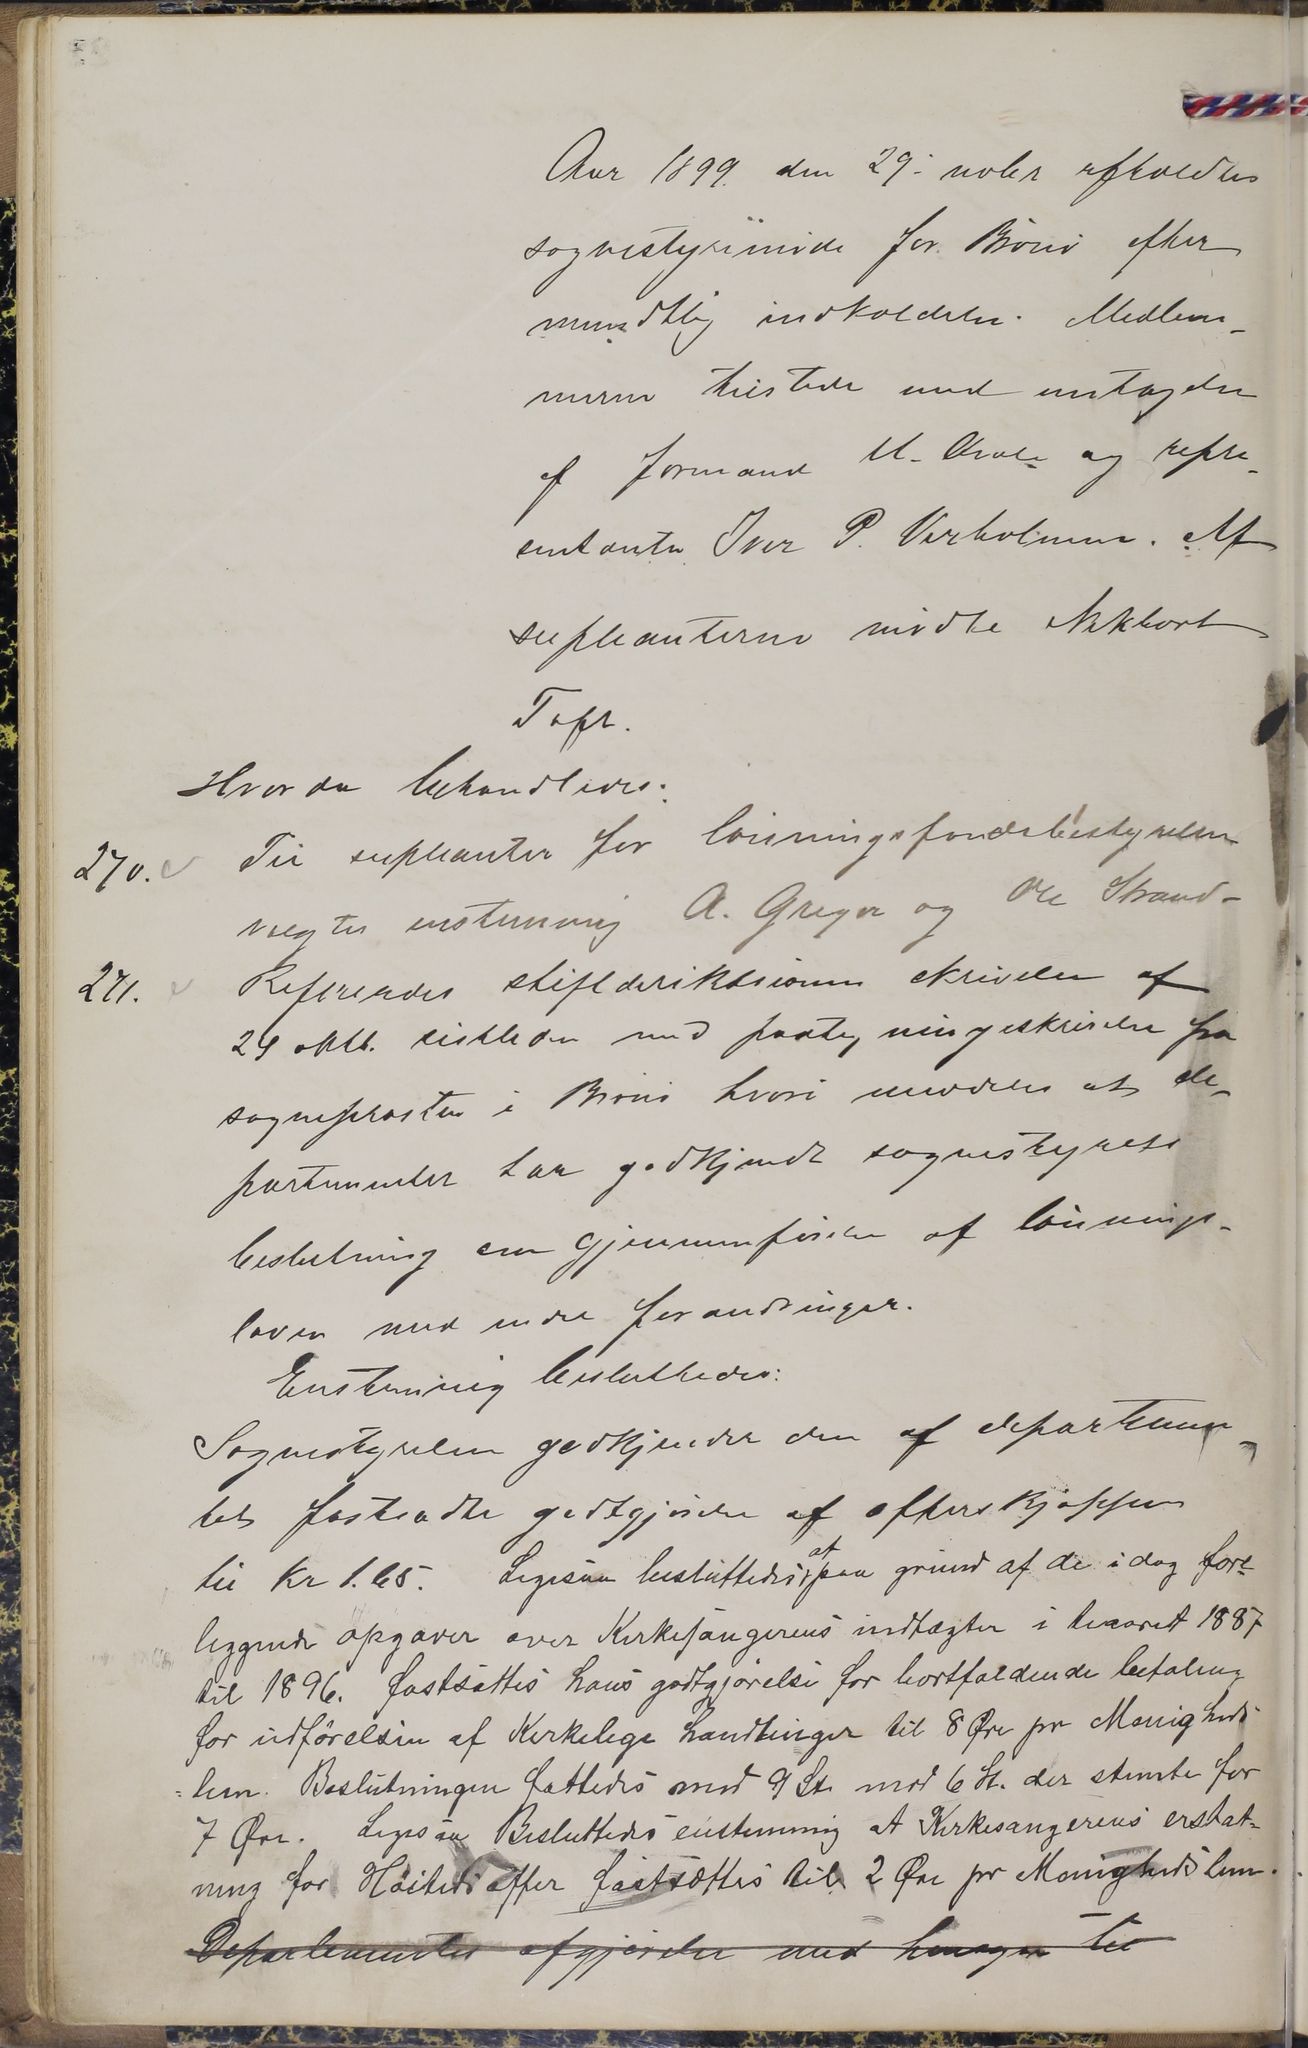 Aar 1899. den 29. nobr afholdtes
sognestyremöde for Brönö efter
mundtlig indkaldelse. Medlem-
merne tilstede med undtagelse
af formand og repre-
sentanten Iver P. Verholmen. Af
supleanterne mödte Nekkort
Toft.
Hvor da behandledes:
270. Til supleanter for lönningsfondsbestyrelsen
valgtes enstemmig A. Greger og Ole Strand-
271. Refereredes stiftdirektionens skrivelse af
24 oktb. sistleden med paategningsskrivelse fra
sogneprosten i Brönö hvori meddeles at de-
partementet har godkjendt sognestyrets
beslutning om gjennemförelse af lönnings-
loven med endel forandringer.
Enstemmig besluttedes:
Sognestyrelsen godkjender den af departemen-
tet fastsadte godtgjörelse af
til Kr 1.65. Ligesaa besluttedes at paa grund af de i dag fore-
liggende opgaver over Kirkesangerens indtægter i tiaaret 1887
til 1896. fastsattes hans godtgjörelse for bortfaldende betaling
for udförelsen af Kirkelege handlinger til 8 Øre pr Menigheds
=lem. Beslutningen fattedes med 9 St. mod 6 St. der stemte for
7 Øre. Ligesaa Besluttedes enstemmig at Kirkesangerens erstat-
ning for Höitidsoffer fastsættes til 2 Øre pr Menighedslem.
Departementets afgjörelse med hensyn til